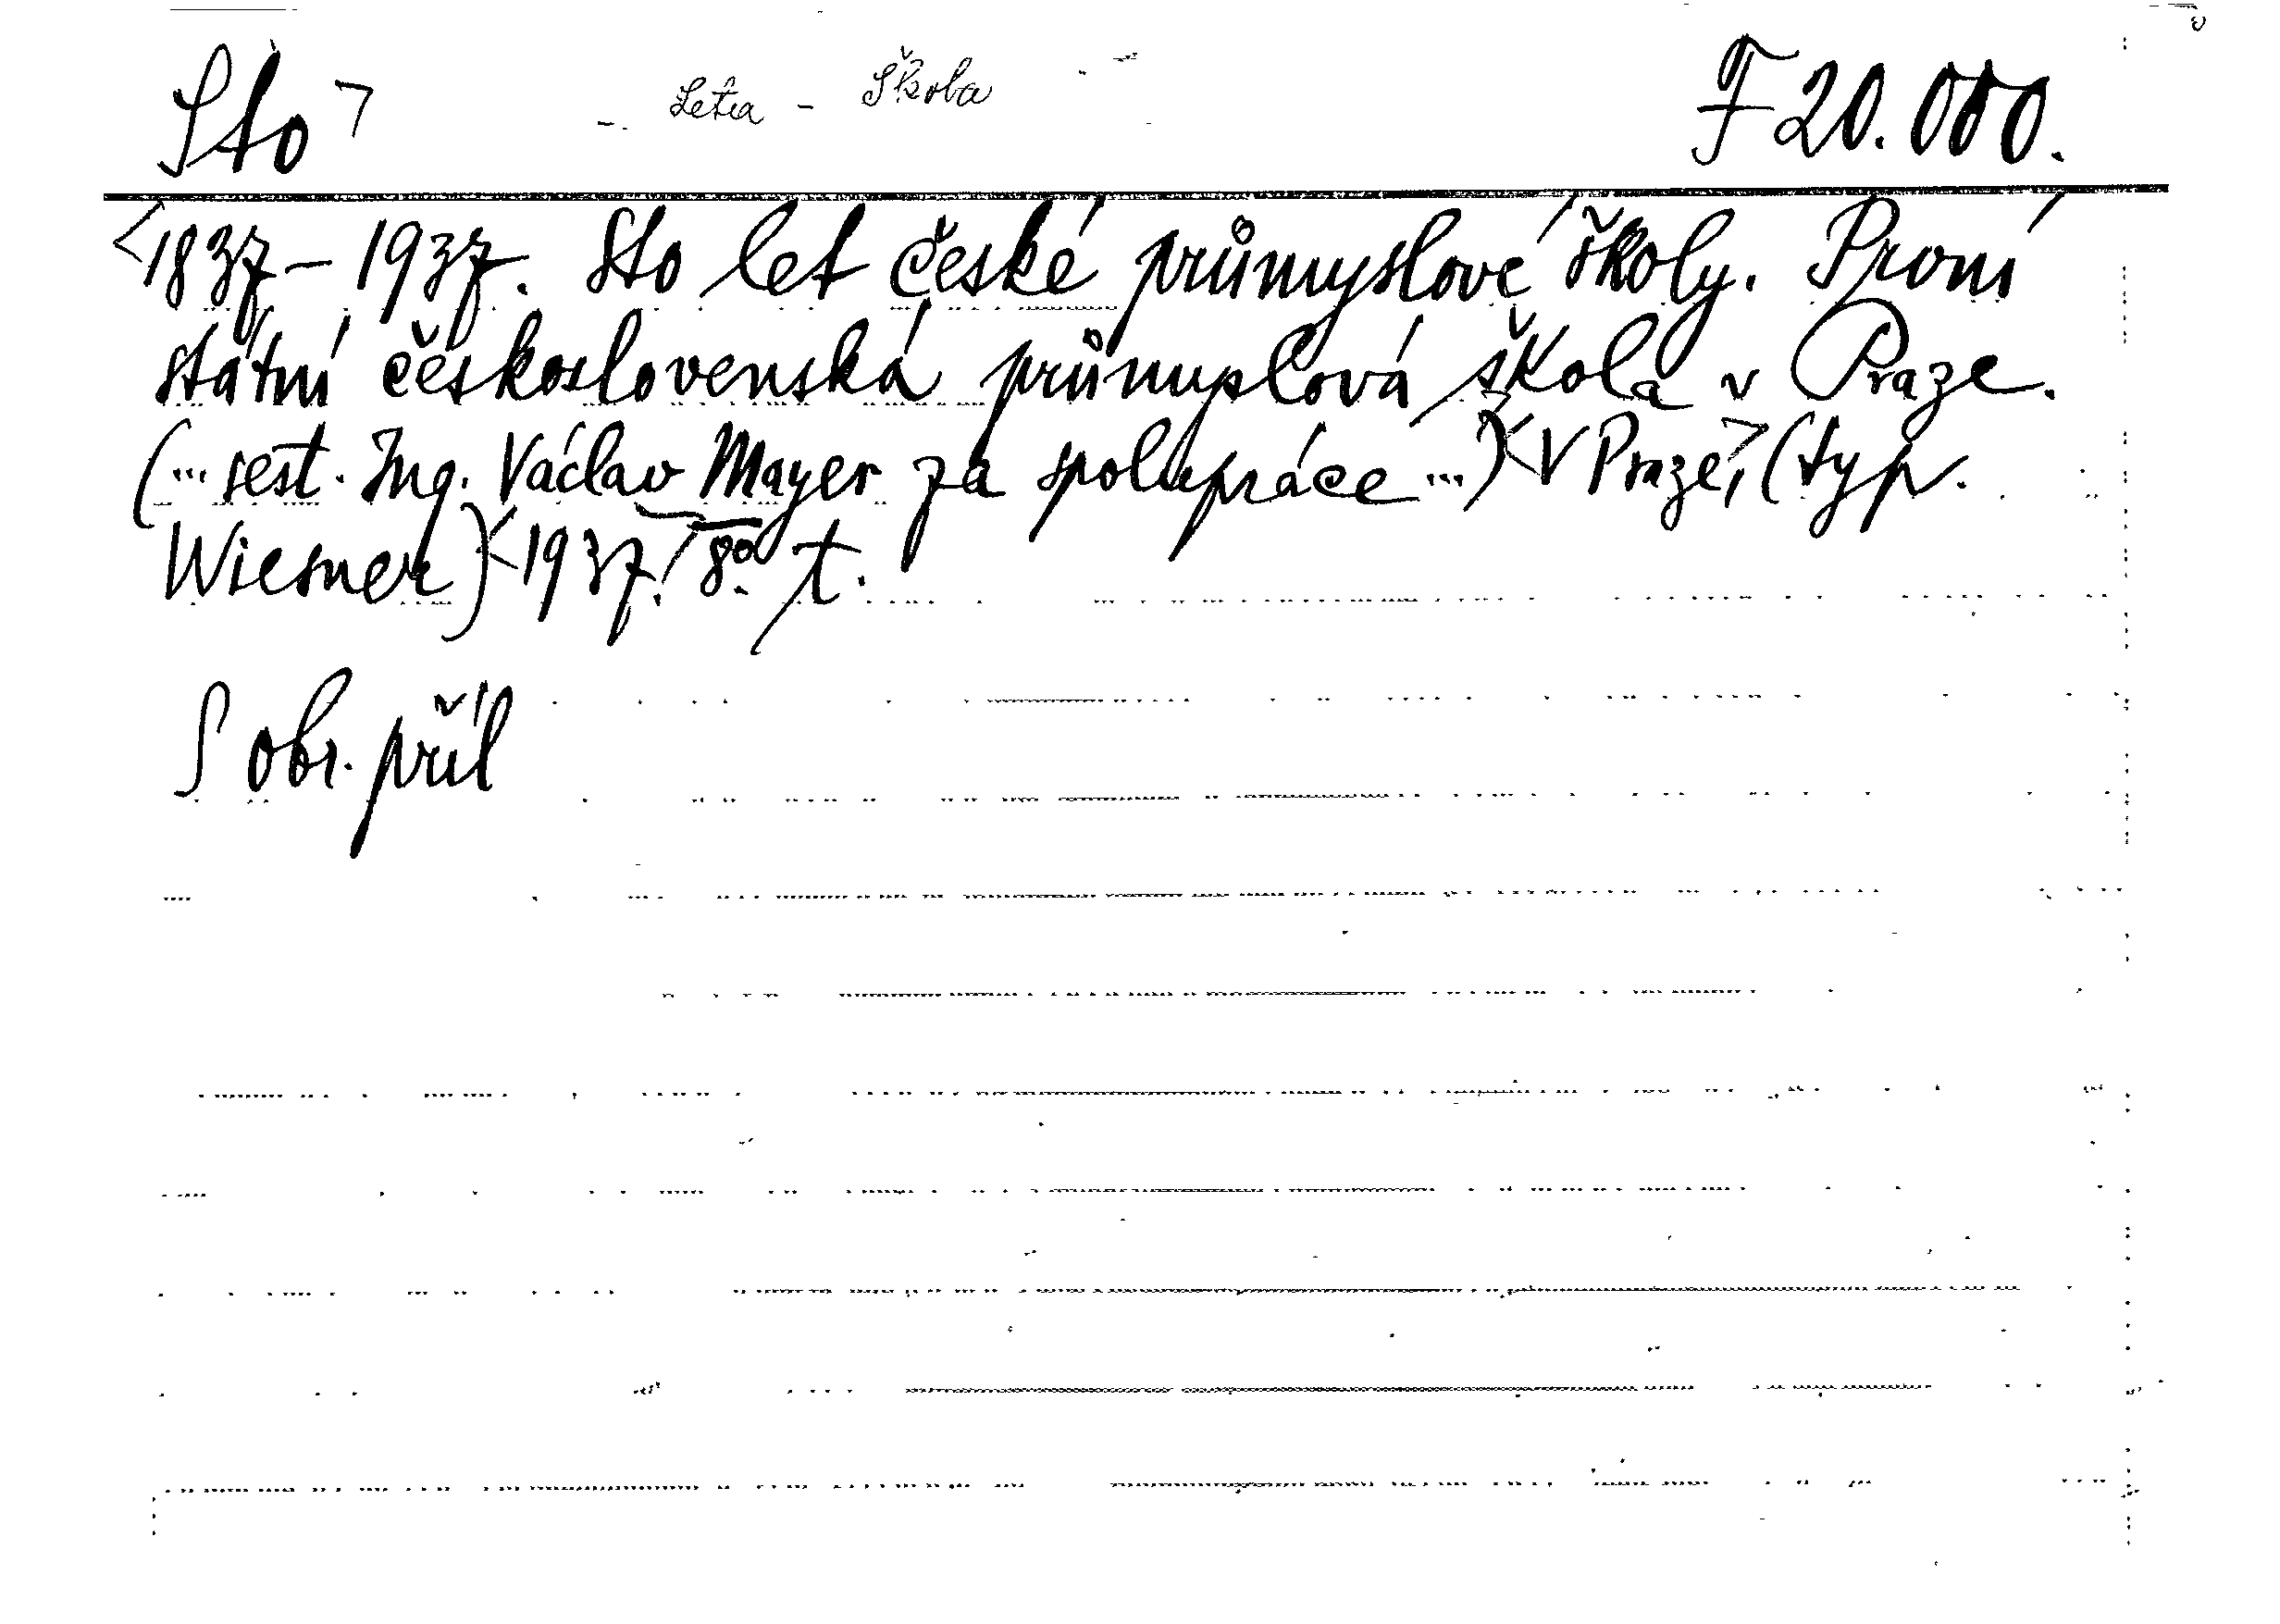 Sto ¬ - Léta - Škola F 20.000.
<1837-1937. Sto let české průmyslové školy. První
státní československá průmyslová škola v Praze.
(... sest. Ing. Václav Mayer za spolupráce ...)<V Praze,> (typ.
Wiesner)<1937.> 8º. t.
S obr. příl